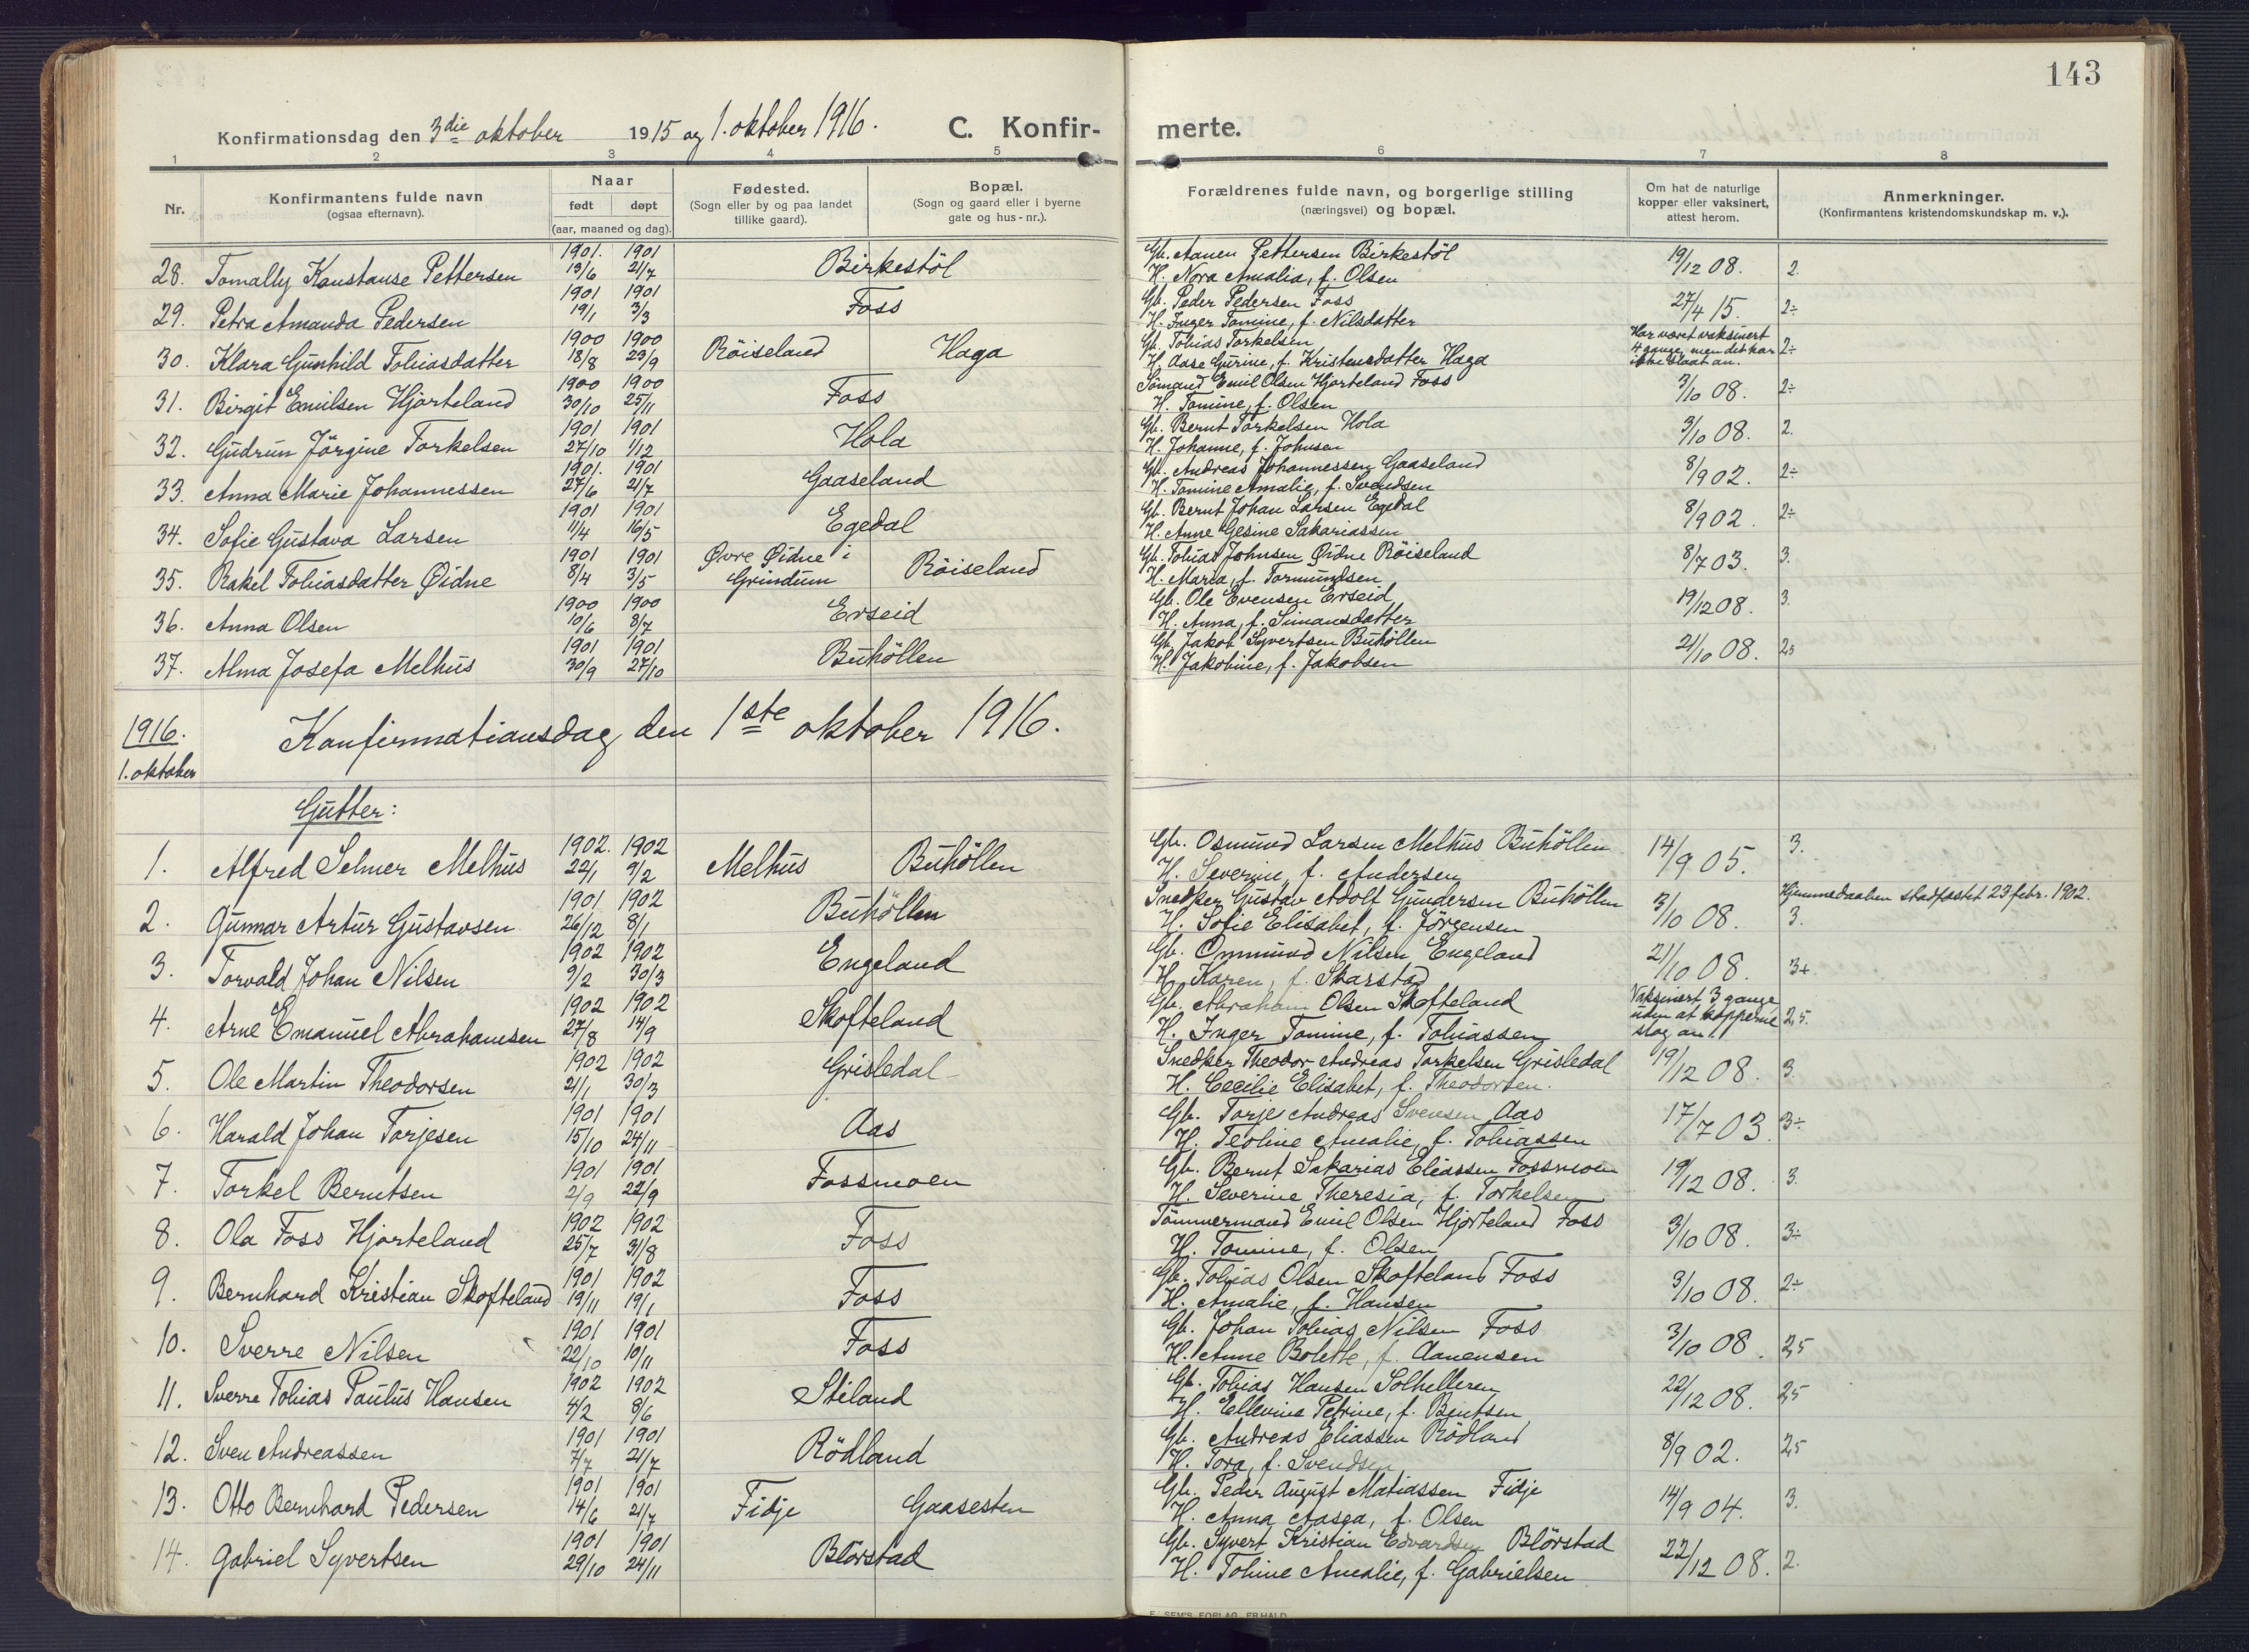 143
Konfirmationsdag den 3die oktober 1915 og 1. oktober 1916.
C. Konfir- merte.
1 2 3 4 5 6 7 8
Nr.
Konfirmantens fulde navn
(ogsaa efternavn).
Naar
født døpt
(aar, maaned og dag).
Fødested.
(Sogn eller by og paa landet
tillike gaard).
Bopæl.
(Sogn og gaard eller i byerne
gate og hus-nr.).
Forældrenes fulde navn, og borgerlige stilling
(næringsvei) og bopæl.
Om hat de naturlige
kopper eller vaksinert,
attest herom.
Anmerkninger.
(Konfirmantens kristendomskundskap m. v.).
28. Tomally Konstanse Pettersen 1901. 13/6 1901 21/7 Birkestöl Gb. Aanen Pettersen Birkestöl 19/12 08. 2.
H. Nora Amalia, f. Olsen
29. Petra Amanda Pedersen 1901 19/1 1901 3/3 Foss Gb. Peder Pedersen Foss 27/4 15. 2÷
H. Inger Tomine, f. Nilsdatter
30. Klara Gunhild Tobiasdatter 1900 18/8 1900 23/9 Röiseland Haga Gb. Tobias Torkelsen Har været vaksinert 4 gange, men det har ikke slaat an. 2÷
H. Aase Gurine, f. Kristensdatter Haga
31. Birgit Emilsen Hjorteland 1900 30/10 1900 25/11 Foss Sömand Emil Olsen Hjorteland Foss 3/10 08. 2÷
H. Tomine, f. Olsen
32. Gudrun Jörgine Torkelsen 1901 27/10 1901 1/12 Hola Gb. Bernt Torkelsen Hola 3/10 08. 2.
H. Johanne, f. Johnsen
33. Anna Marie Johannessen 1901. 27/6 1901 21/7 Gaaseland Gb. Andreas Johannessen Gaaseland 8/9 02. 2÷
H. Tomine Amalie, f. Svendsen
34. Sofie Gustava Larsen 1901 11/4 1901 16/5 Egedal Gb. Bernt Johan Larsen Egedal 8/9 02. 2÷
H. Anne Gesine Sakariassen
35. Rakel Tobiasdatter Øidne 1901 8/4 1901 3/5 Øvre Øidne i Grindum Röiseland Gb. Tobias Johnsen Øidne Röiseland 8/7 03. 3.
H. Maria, f. Tormundsen
36. Anna Olsen 1900 10/6 1900 8/7 Erseid Gb. Ole Evensen Erseid 19/12 08. 3.
H. Anna, f. Simansdatter
37. Alma Josefa Melhus 1901 30/9 1901 27/10 Buhöllen Gb. Jakob Syvertsen Buhöllen 21/10 08. 2,5
H. Jakobine, f. Jakobsen
1916. Konfirmationsdag den 1ste oktober 1916.
1. oktober
Gutter:
1. Alfred Selmer Melhus 1902. 22/1 1902 9/2 Melhus Buhöllen Gb. Osmund Larsen Melhus Buhöllen 14/9 05. 3.
H. Severine, f. Andersen
2. Gunnar Artur Gustavsen 1901 26/12 1902 8/1 Buhöllen Snedker Gustav Adolf Gundersen Buhöllen 3/10 08. Hjemmedaaben stadfæstet 23 febr. 1902. 3.
H. Sofie Elisabet, f. Jörgensen
3. Torvald Johan Nilsen 1902 9/2 1902 30/3 Engeland Gb. Ommund Nilsen Engeland 21/10 08. 3+
H. Karen, f. Skarstad
4. Arne Emanuel Abrahamsen 1902 27/8 1902 14/9 Skofteland Gb. Abraham Olsen Skofteland Vaksinert 3 gange uden at kopperne slog an. 2,5.
H. Inger Tomine, f. Tobiassen
5. Ole Martin Theodorsen 1902 21/1 1902 30/3 Grisledal Snedker Theodor Andreas Torkelsen Grisledal 19/12 08. 3.
H. Cecilie Elisabet, f. Theodorsen.
6. Harald Johan Torjesen 1901 15/10 1901 24/11 Aas Gb. Torjes Andreas Svensen Aas 17/7 03. 3÷
H. Teoline Amalie, f. Tobiassen
7. Torkel Berntsen 1901 2/9 1901 22/9 Fossmoen Gb. Bernt Sakarias Eliassen Fossmoen 19/12 08. 3.
H. Severine Theresia, f. Torkelsen
8. Ola Foss Hjorteland 1902 25/7 1902 31/8 Foss Tömmermand Emil Olsen Hjorteland Foss 3/10 08. 3÷
H. Tomine, f. Olsen
9. Bernhard Kristian Skofteland 1901 19/11 1902 19/1 Foss Gb. Tobias Olsen Skofteland Foss 3/10 08. 2÷
H. Amalie, f. Hansen
10. Sverre Nilsen 1901 22/10 1901 10/11 Foss Gb. Johan Tobias Nilsen Foss 3/10 08. 2,5
H. Anne Bolette, f. Aanensen
11. Sverre Tobias Paulus Hansen 1902 4/2 1902 8/6 Stiland Gb. Tobias Hansen Solhelleren 22/12 08. 2,5
H. Ellevine Petrine, f. Bentsen
12. Sven Andreassen 1901 7/7 1901 21/7 Rödland Gb. Andreas Eliassen Rödland 8/9 02. 2,5
H. Tora, f. Svendsen
13. Otto Bernhard Pedersen 1901 14/6 1901 21/7 Fidje Gaasesten Gb. Peder August Matiassen Fidje 14/9 04. 3.
H. Anna Aasea, f. Olsen
14. Gabriel Syvertsen 1901 29/10 1901 24/11 Blörstad Gb. Syvert Kristian Edvardsen Blörstad 22/12 08. 2.
H. Toline Amalie, f. Gabrielsen
SEM'S FORLAG, FRHALD